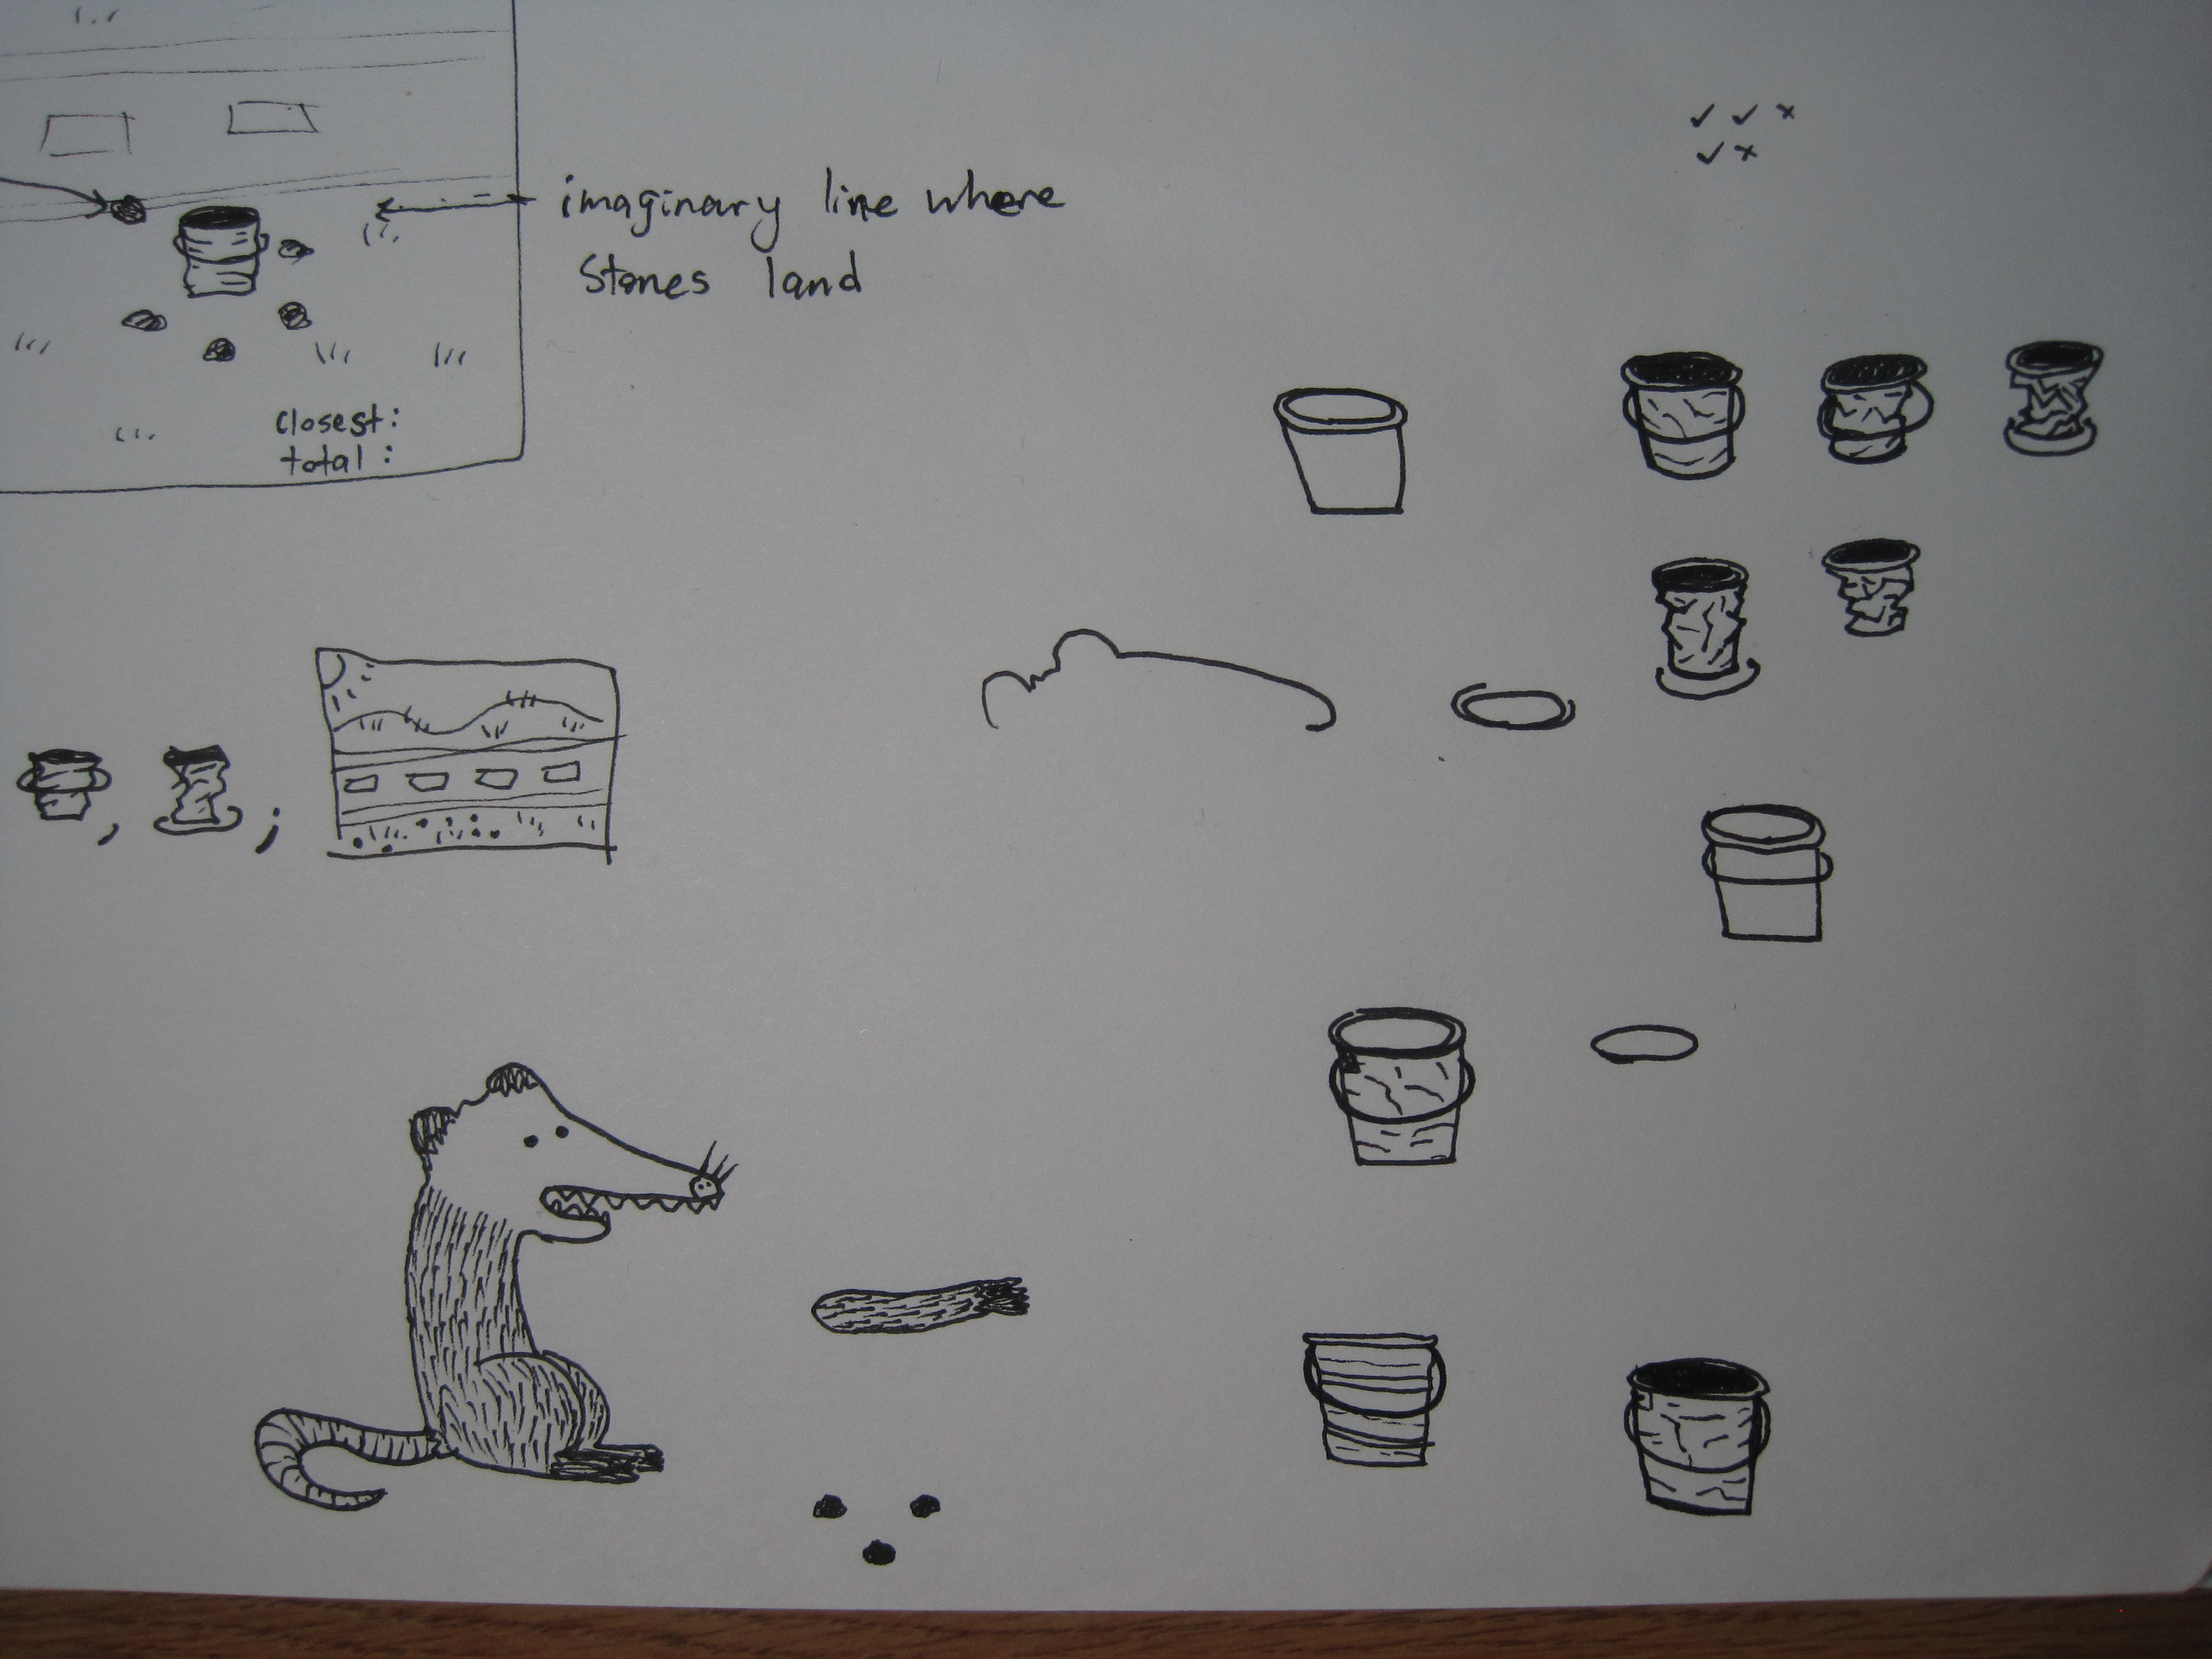 imaginary line where
Stones land
Closest:
total :